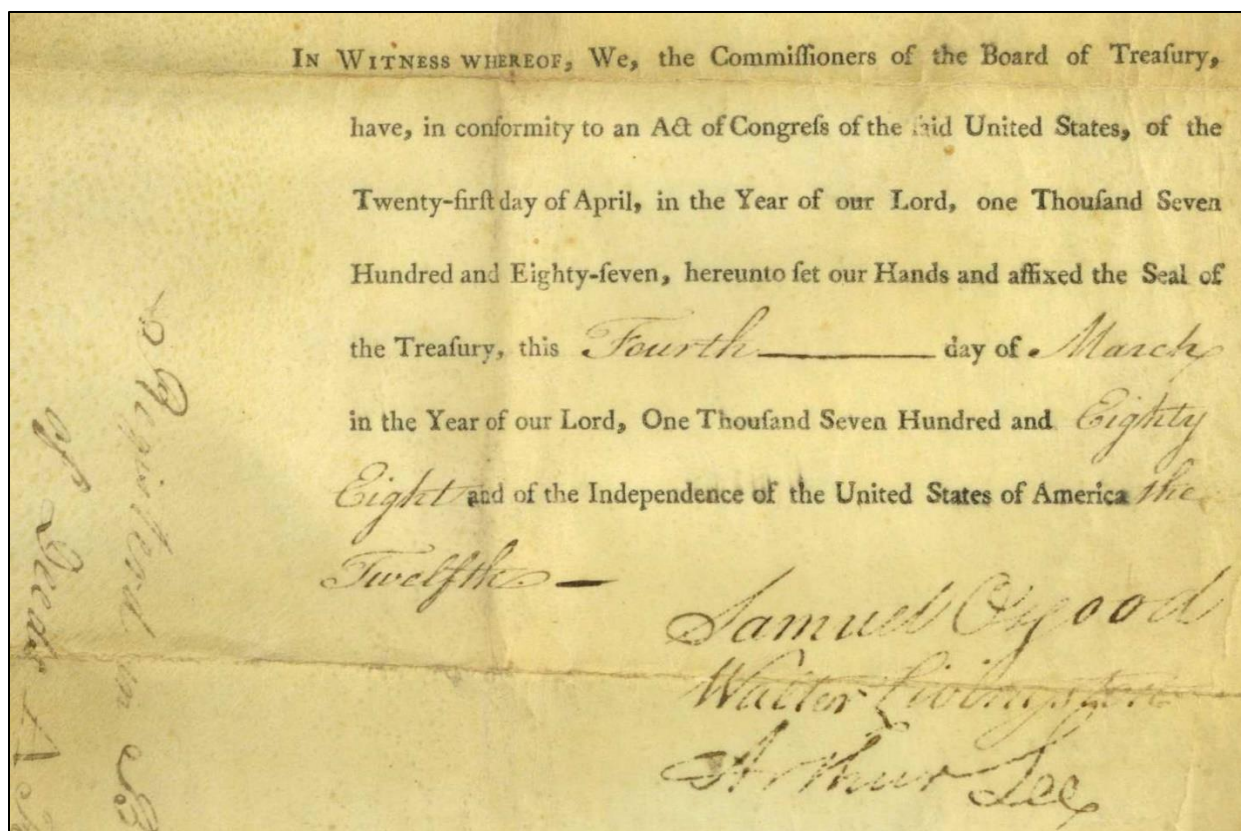 IN WITNESS WHEREOF, We, the Commiſſioners of the Board of Treaſury,
have, in conformity to an Act of Congreſs of the ſaid United States, of the
Twenty-firſt day of April, in the Year of our Lord, one Thouſand Seven
Hundred and Eighty-ſeven, hereunto ſet our Hands and affixed the Seal of
the Treaſury, this Fourth day of March
in the Year of our Lord, One Thouſand Seven Hundred and Eighty
Eight and of the Independence of the United States of America the
Twelfth —
Samuel Osgood
Walter Livingston
Arthur Lee
Registered in B
of Deeds A